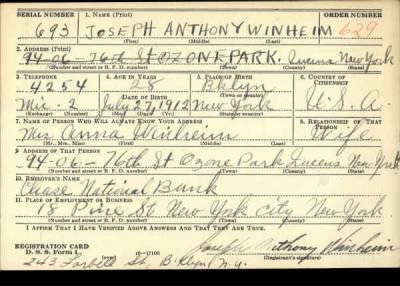 SERIAL NUMBER 1. NAME (Print) ORDER NUMBER
693 JOSEPH ANTHONY WINHEIM 629
(First) (Middle) (Last)
2. ADDRESS (Print)
94-06-76th St OZONE PARK. Queens New York
(Number and street or R. F. D. number) (Town) (County) (State)
3. TELEPHONE 4. AGE IN YEARS 5. PLACE OF BIRTH 6. COUNTRY OF CITIZENSHIP
4254 28 Bklyn
DATE OF BIRTH (Town or county)
Mic. 2 July 27, 1912 New York U.S.A.
(Exchange) (Number) (Mo.) (Day) (Yr.) (State or country)
7. NAME OF PERSON WHO WILL ALWAYS KNOW YOUR ADDRESS 8. RELATIONSHIP OF THAT PERSON
Mrs Anna Winheim Wife
(Mr., Mrs., Miss) (First) (Middle) (Last)
9. ADDRESS OF THAT PERSON
94-06-76th St Ozone Park Queens New York
(Number and street or R. F. D. number) (Town) (County) (State)
10. EMPLOYER'S NAME
Chase National Bank
11. PLACE OF EMPLOYMENT OR BUSINESS
18 Pine St New York City New York
(Number and street or R. F. D. number) (Town) (County) (State)
I AFFIRM THAT I HAVE VERIFIED ABOVE ANSWERS AND THAT THEY ARE TRUE.
REGISTRATION CARD
D. S. S. Form 1 16-17105 Joseph Anthony Winheim
(Registrant's signature)
243 St, Bklyn N.Y.